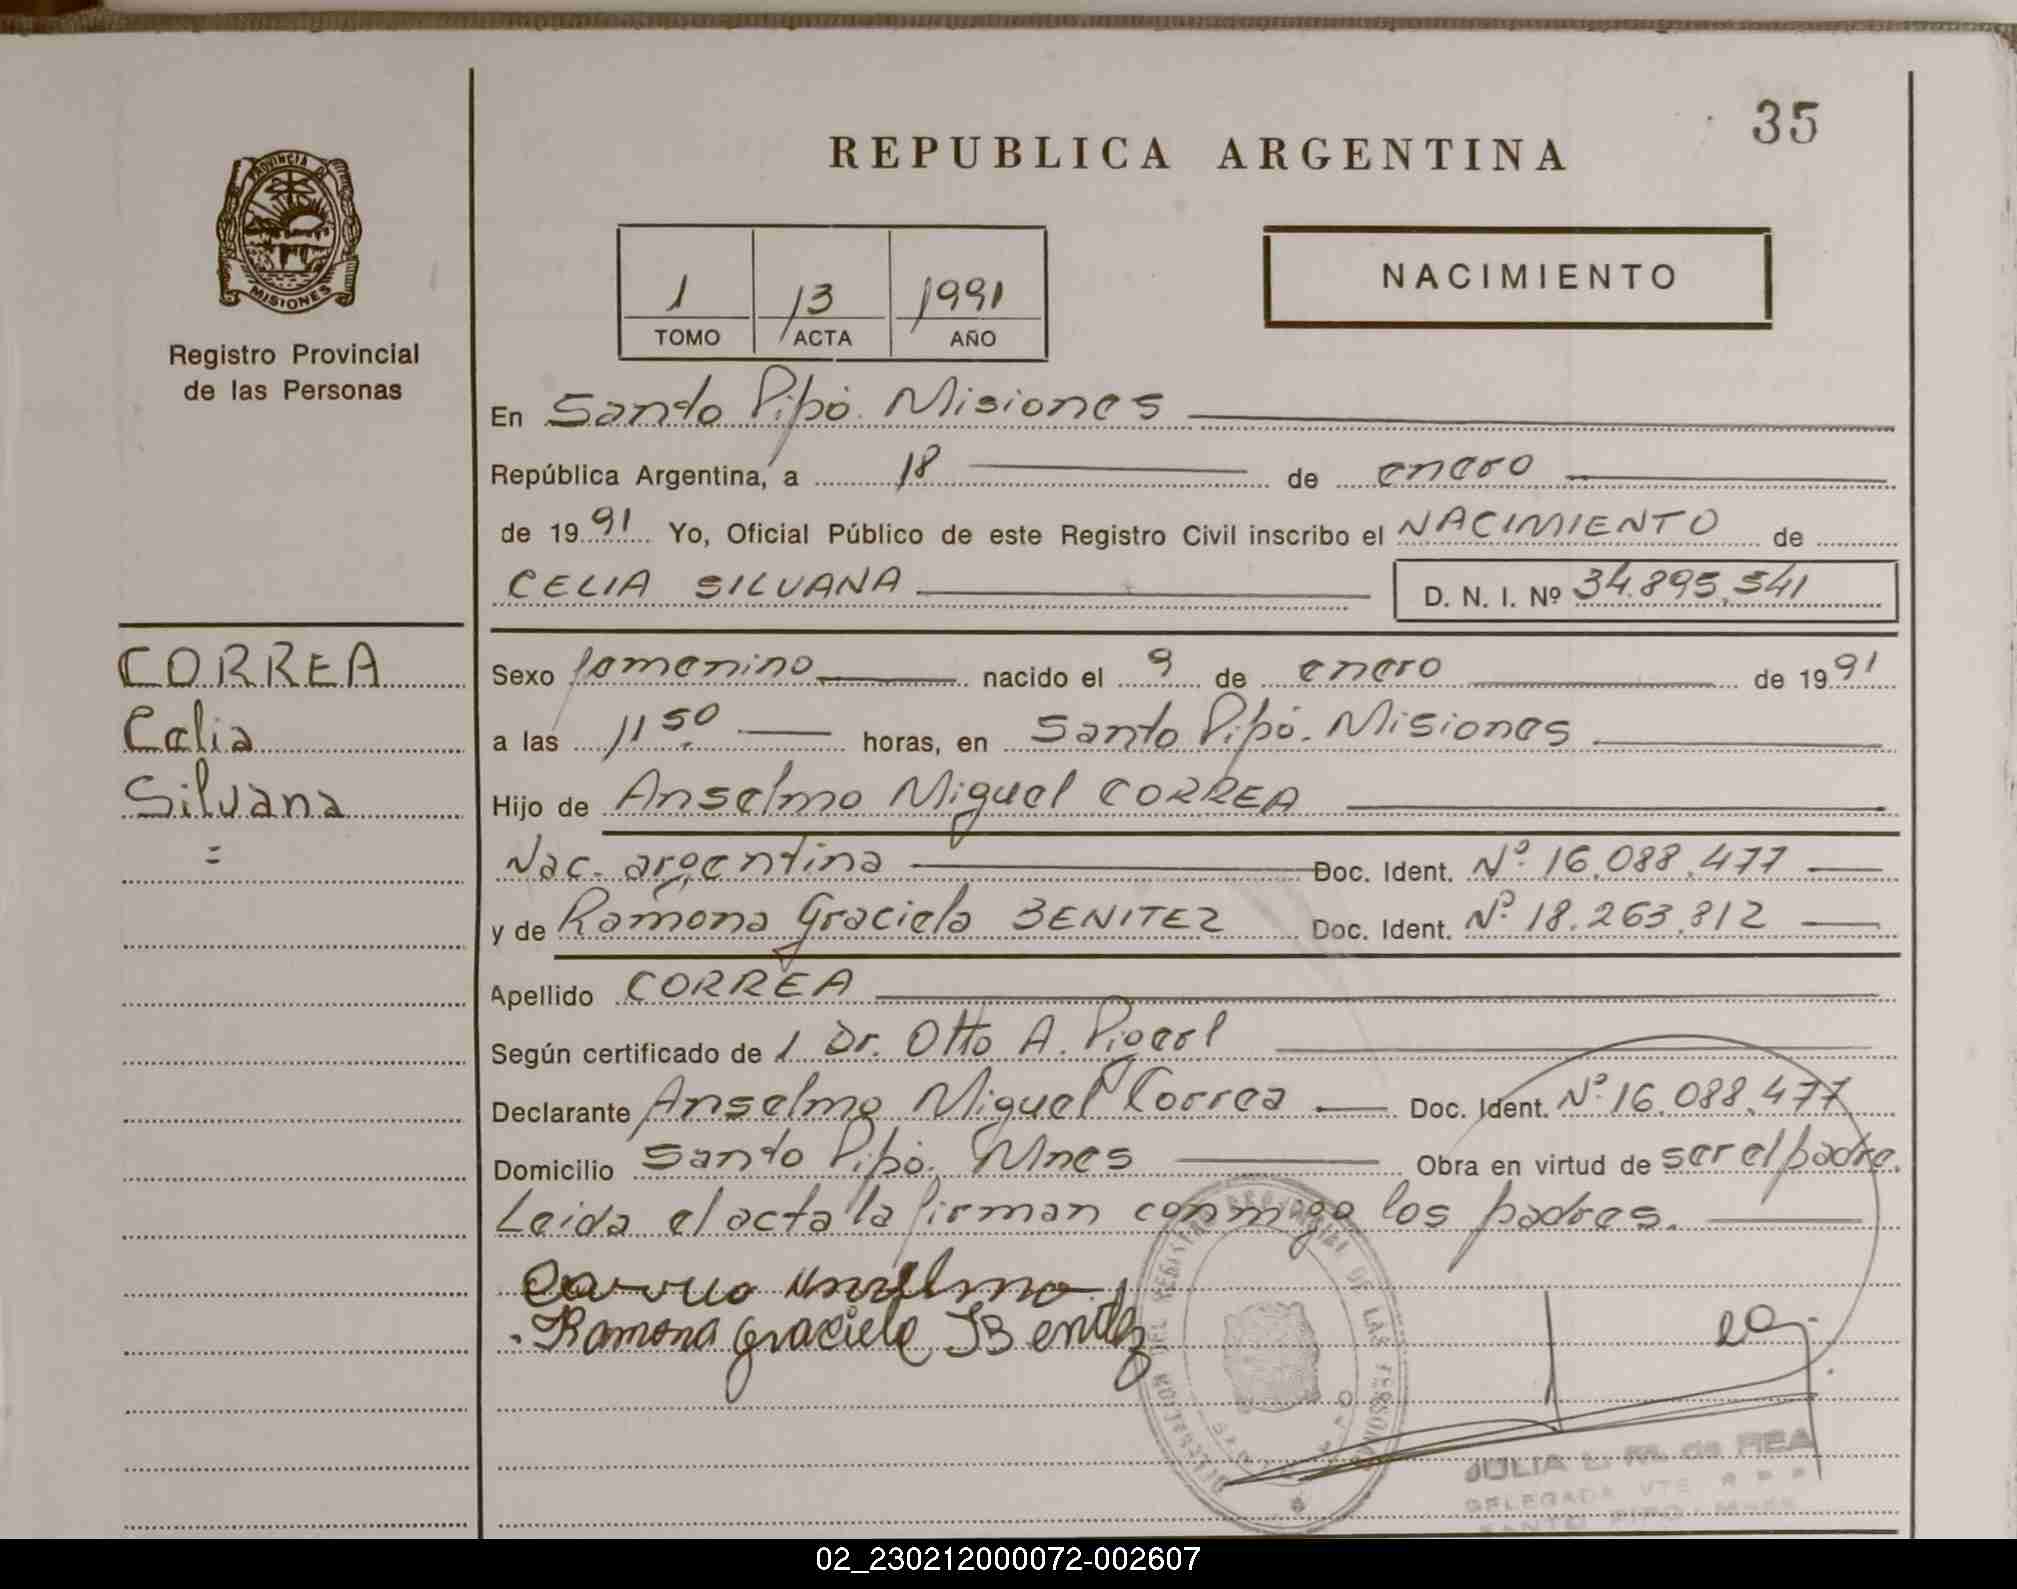 35
REPUBLICA ARGENTINA
PROVINCIA DE
MISIONES
Registro Provincial
de las Personas
1 13 1991
TOMO ACTA AÑO
NACIMIENTO
En Santo Pipó. Misiones
República Argentina, a 18 de enero
de 1991 Yo, Oficial Público de este Registro Civil inscribo el NACIMIENTO de
CELIA SILVANA D. N. I. Nº 34.895.541
CORREA
Celia
Silvana
=
Sexo femenino nacido el 9 de enero de 1991
a las 11 50 horas, en Santo Pipó. Misiones
Hijo de Anselmo Miguel CORREA
Nac. argentina Doc. Ident. Nº 16.088.477
y de Ramona Graciela BENITEZ Doc. Ident. Nº 18.263.812
Apellido CORREA
Según certificado de 1 Dr. Otto A.
Declarante Anselmo Miguel Correa Doc. Ident. Nº 16.088.477
Domicilio Santo Pipó. Mnes Obra en virtud de ser el padre.
Leida el acta la firman conmigo los padres.
Anselmo
Ramona Graciela Benitez
DELEGACION DEL REGISTRO PROVINCIAL DE LAS PERSONAS
JULIA L. M. de REA
DELEGADA
SANTO PIPO - MNES
02_230212000072-002607